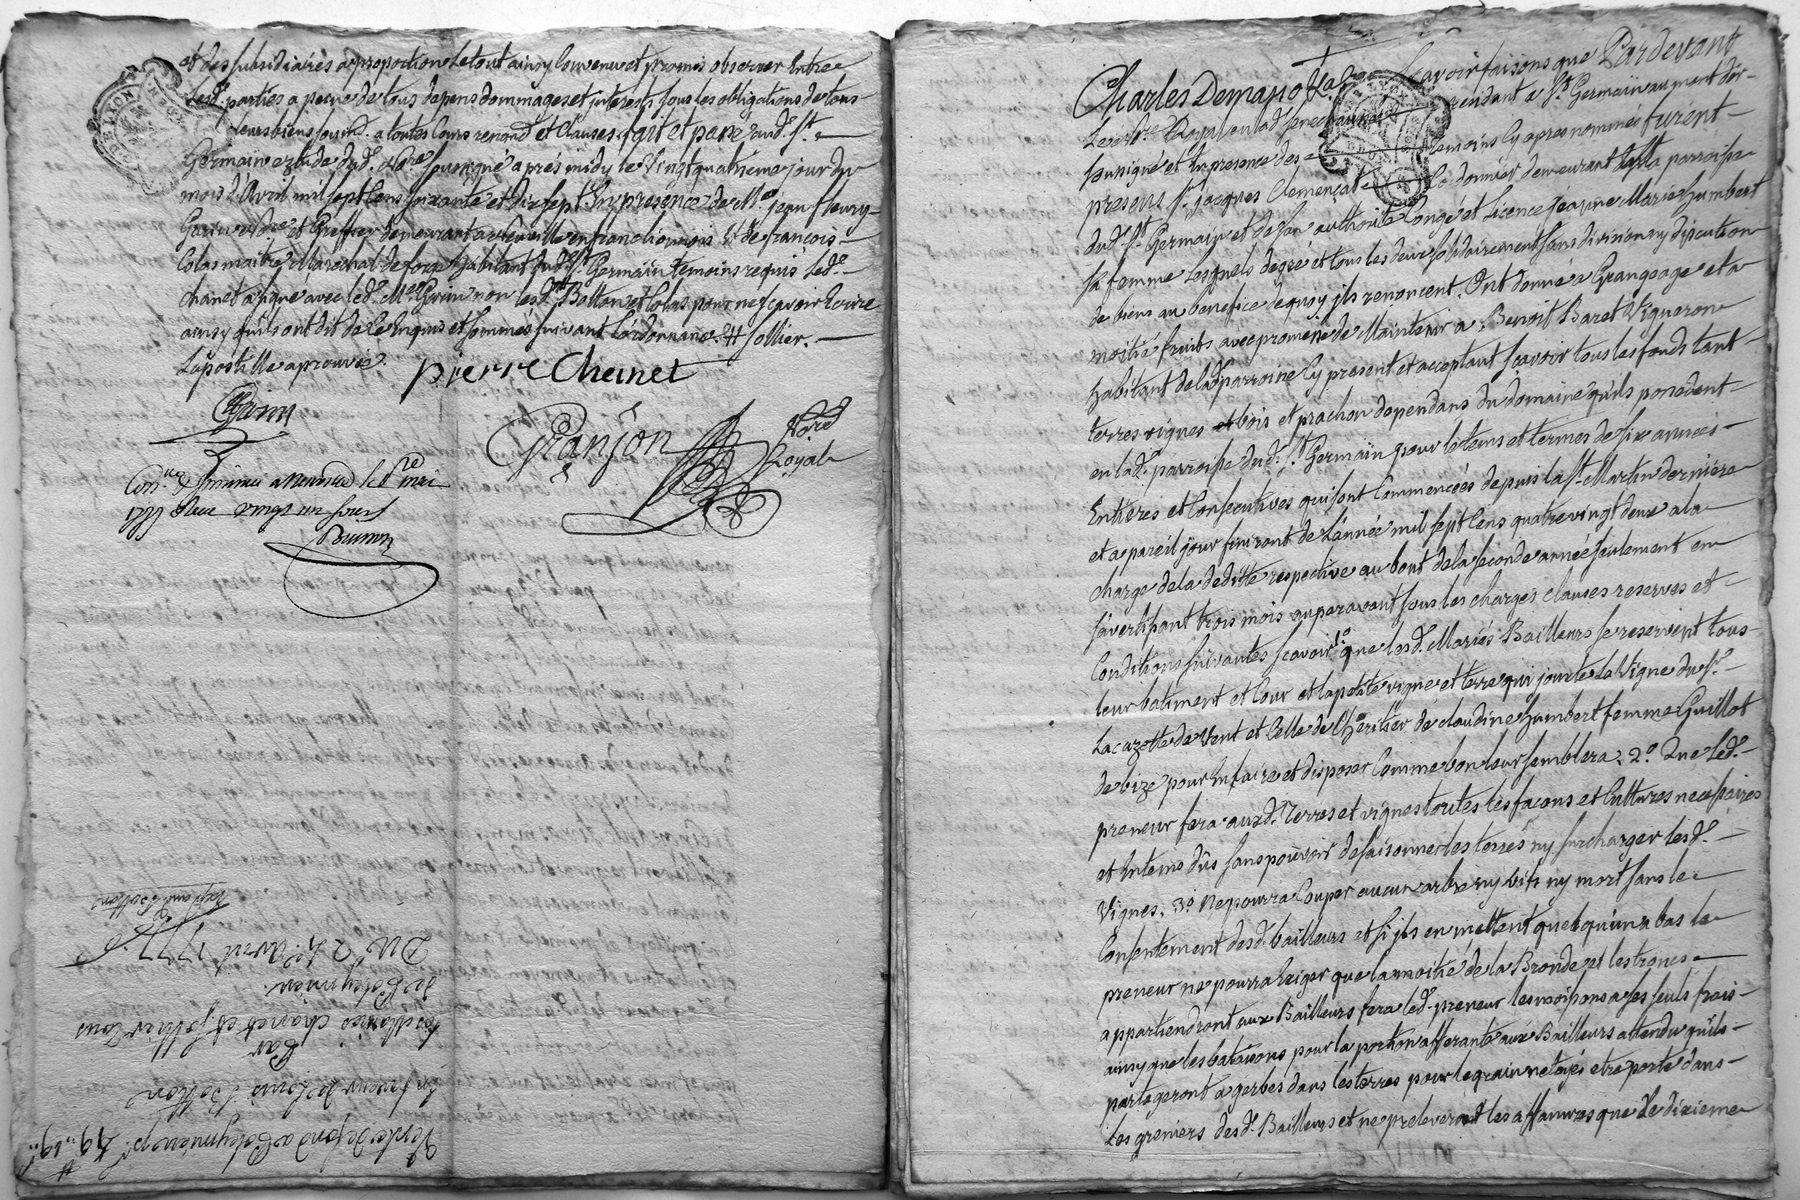 et des subsidiaires a proportion le tout ainsy convenu et promis observer Entre
lesd. parties a peine de tous depens dommages et interests sous les obligations de tous
leurs biens soumd. a toutes Cours renond. et Clauses, fait et passé aud. St.
Germain etude dud. Nore soussigné a prés midy le Vingt quatrieme jour du
mois d'Avril mil sept Cens soixante et dix sept En presence de Me. jean fleury
Gorin Nore et Greffier demeurant a en franclionnois Et de francois
Colas maitre Marechal de forge habitant dud. St. Germain temoins requis led.
chanet a signé avec led. Me. Gorin non lesd. Botton et Colas pour ne scavoir Ecrire
ainsy qu'ils ont dit de Ce Enquis et sommés suivant l'ordonnance. # jollier.
L'apostille aprouvée.
pierre Chanet
Gorin
Granjon
Nore
Royal
Conlle. & a le 1re mai
1777 Reçu vingt un sous
Vente de fond a Coleymieux pr. 49.. 19..
En faveur de Louis Botton
Par
les Mariés chanet et jollier tous
de Coleymieux.
Du 24e. avril 1777
Charles Demazo
Scavoir faisons que Pardevant
Le Nre. Royal en lad. senechaussée residant a St. Germain au mont d'or
sousigné et En presence des temoins Cy apres nommés furent
presens Sr. jacques Clemençat Cordonnier demeurant dans la parroisse
dud. St. Germain et de son authorité Congé et Licence jeanne Marie humbert
sa femme Lesquels de gré et tous les deux solidairement sans division ny discution
de biens au benefice de quoy ils renoncent. Ont donné a Grangeage et a
moitié fruits avec promesse de Maintenir a Benoit Baret Vigneron
habitant de lad. parroisse Cy present et acceptant scavoir tous les fonds tant
terres vignes et bois et prachon dependans du domaine qu'ils possedent
en lad. parroisse dud. St. Germain pour le tems et termes de six années
Entieres et Consecutives qui sont Commencées depuis la St. Martin derniere
et a pareil jour finiront de L'année mil sept Cens quatre vingt deux a la
charge de la deditte respective au bout de la seconde année seulement en
s'avertissant trois mois auparavant sous les charges clauses reserves et
Conditions suivantes scavoir 1°. que lesd. Mariés Bailleurs se reservent tous
leur batiment et Cour et la petite vigne et terre qui jouxte la Vigne du Sr.
Lacazette de Vent et Celle de l'héritier de claudine humbert femme Guillot
de bize pour En faire et disposer Comme bon leur semblera, 2°. Que led.
preneur fera auxd. Terres et vignes toutes les façons et Cultures necessaires
et En tems dûs sans pouvoir desaisonner les terres ny surcharger lesd.
Vignes, 3°. Ne pourra Couper aucun arbre ny vifs ny mort sans le
Consentement desd. bailleurs et si ils en mettent quelqu'un a bas le
preneur ne pourra Exiger que la moitié de la Bronde et les troncs
appartiendront aux Bailleurs fera led. preneur les moissons a ses seuls frais
ainsy que les bataisons pour la portion afferante aux Bailleurs attendu qu'ils
partageront a gerbes dans les terres pour le grain netoyé etre porté dans
Les greniers desd. Bailleurs et ne preleveront les affanures que de dixieme